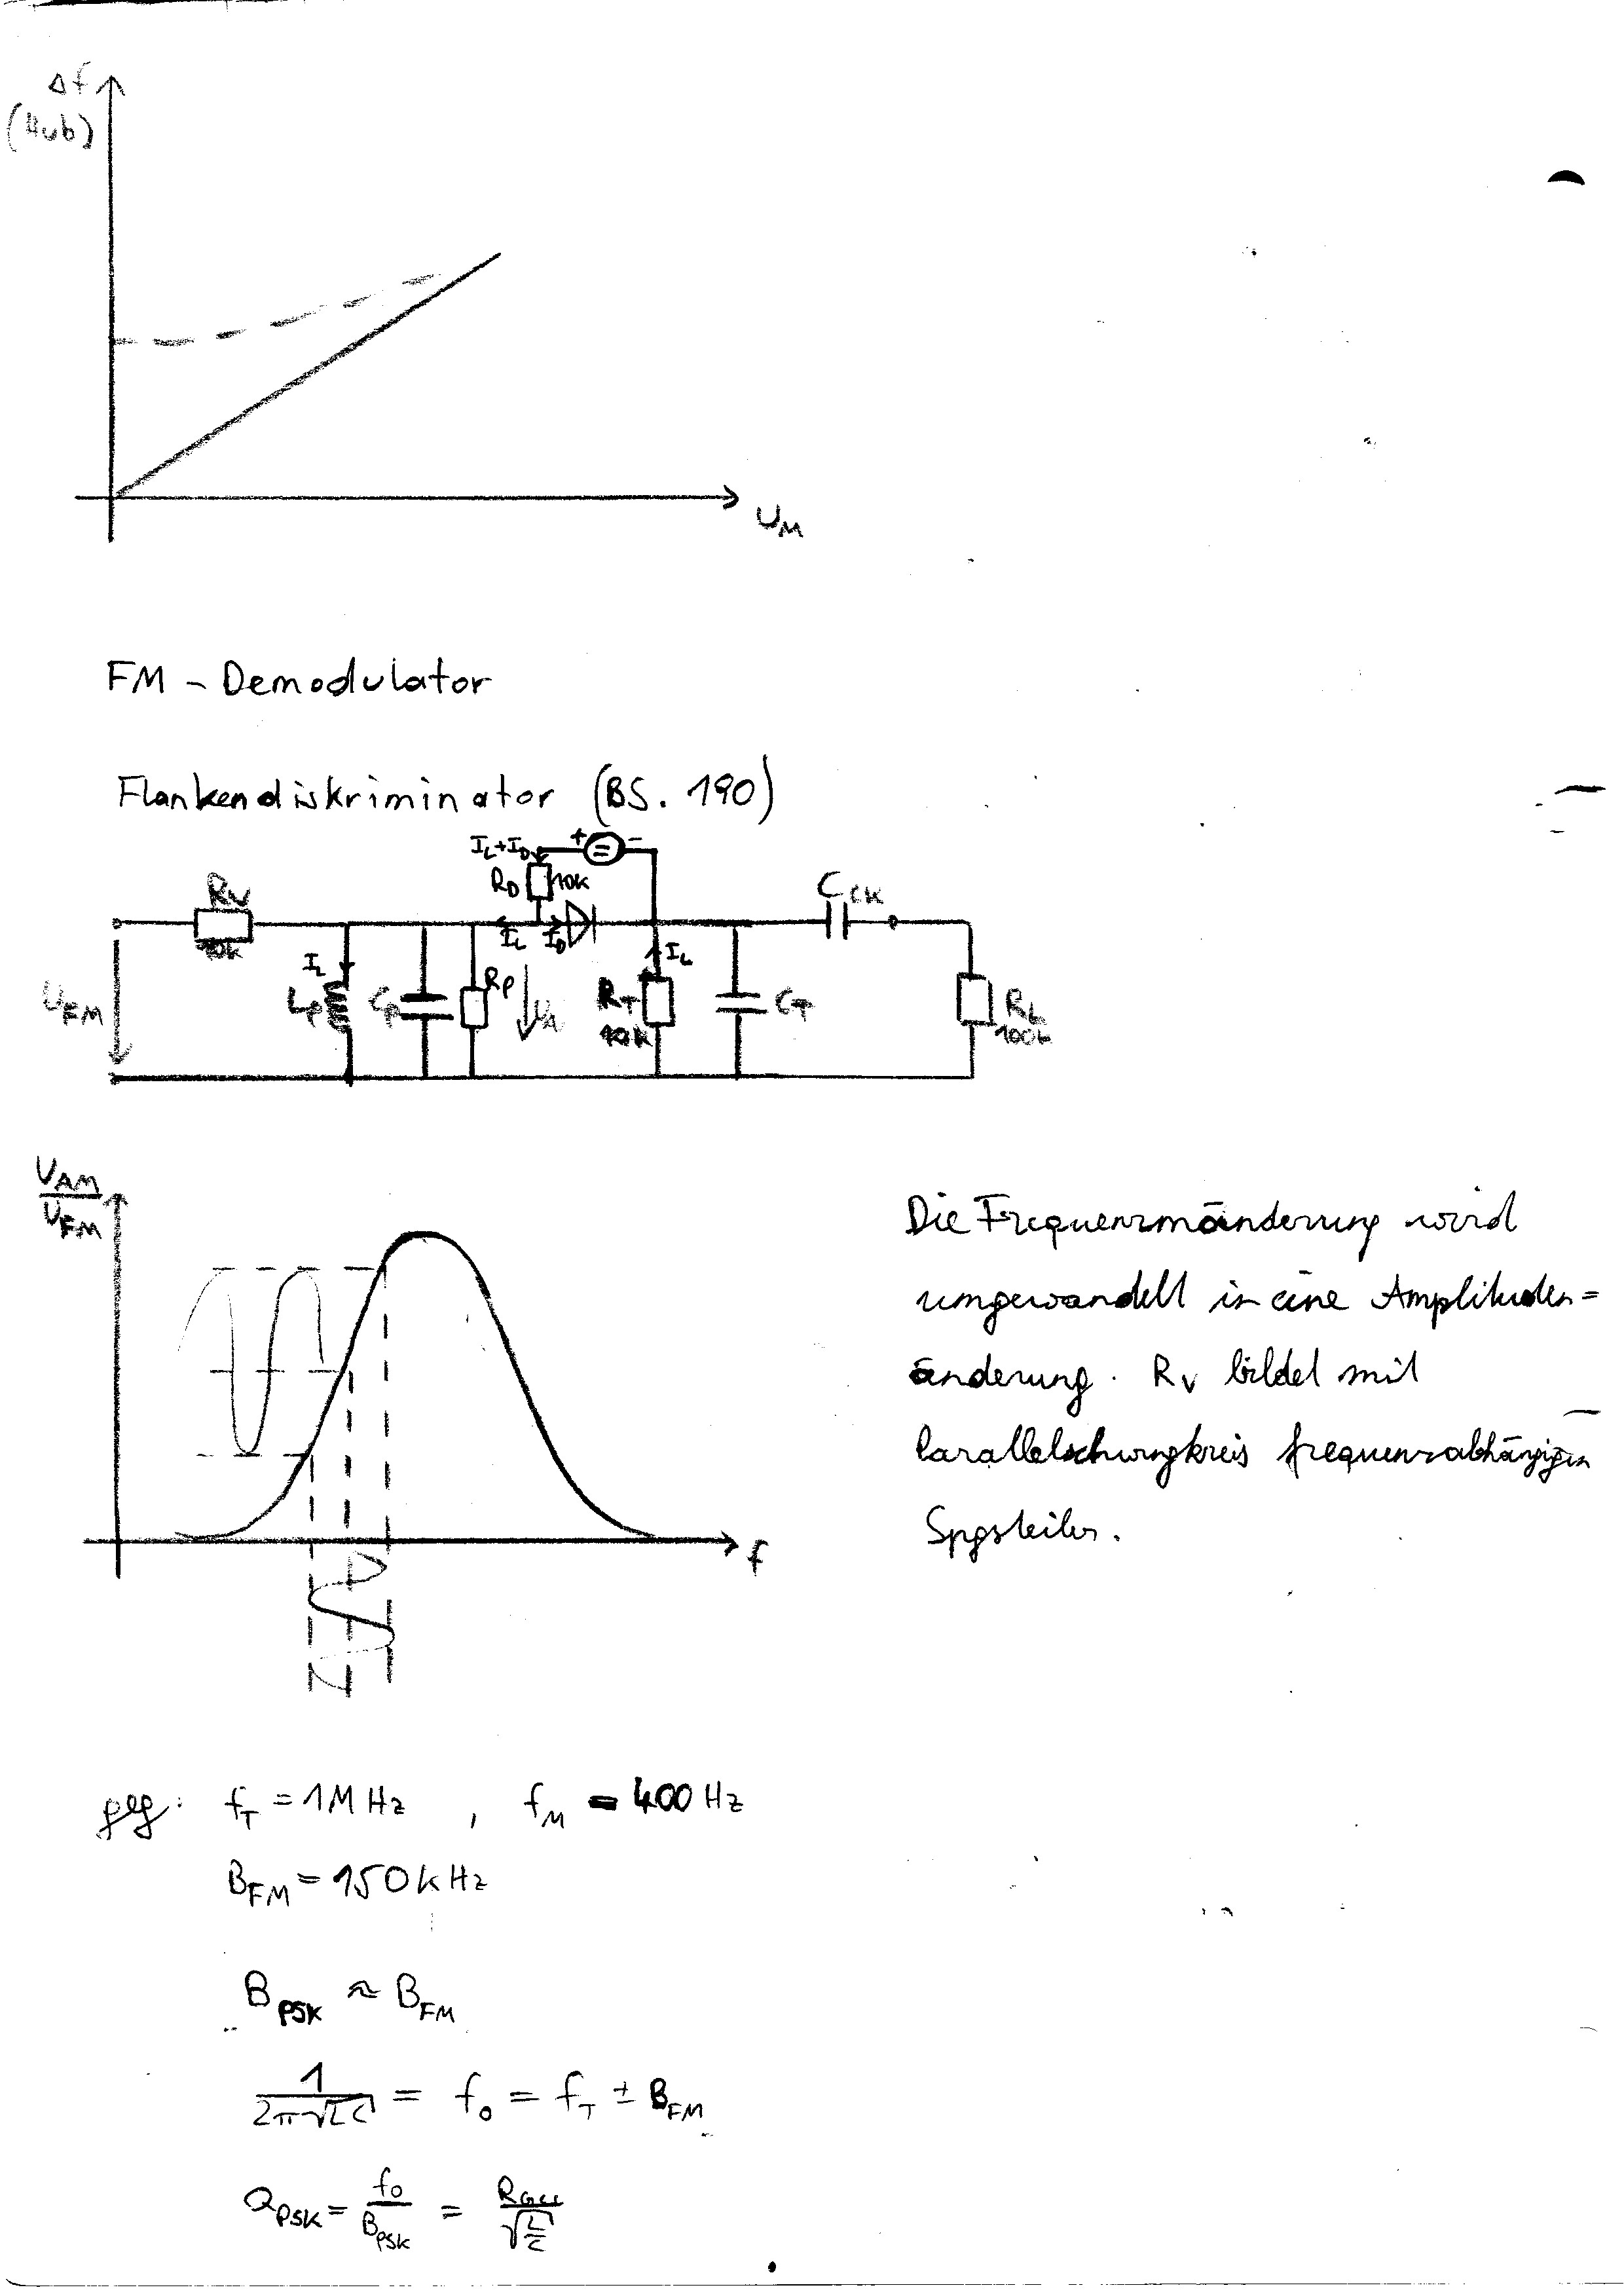 Δf
(Hub)
U_M
FM - Demodulator
Flankendiskriminator (BS. 190)
I_L+I_D + = -
R_D 10k
R_V
10k
C_CK
I_L I_D
I_L
I_L
U_FM
L_P C_P R_P U_A R_T C_T R_L
10k
100k
U_AM
U_FM
f
Die Frequenzmänderung wird
umgewandelt in eine Amplituden=
änderung. R_V bildet mit
Parallelschwingkreis frequenzabhängigen
Spgsteiler.
geg: f_T = 1MHz , f_M = 400Hz
B_FM = 150kHz
B_PSK ≈ B_FM
1/(2π√LC) = f_0 = f_T ± B_FM
Q_PSK = f_0/B_PSK = R_Gu/√(L/C)